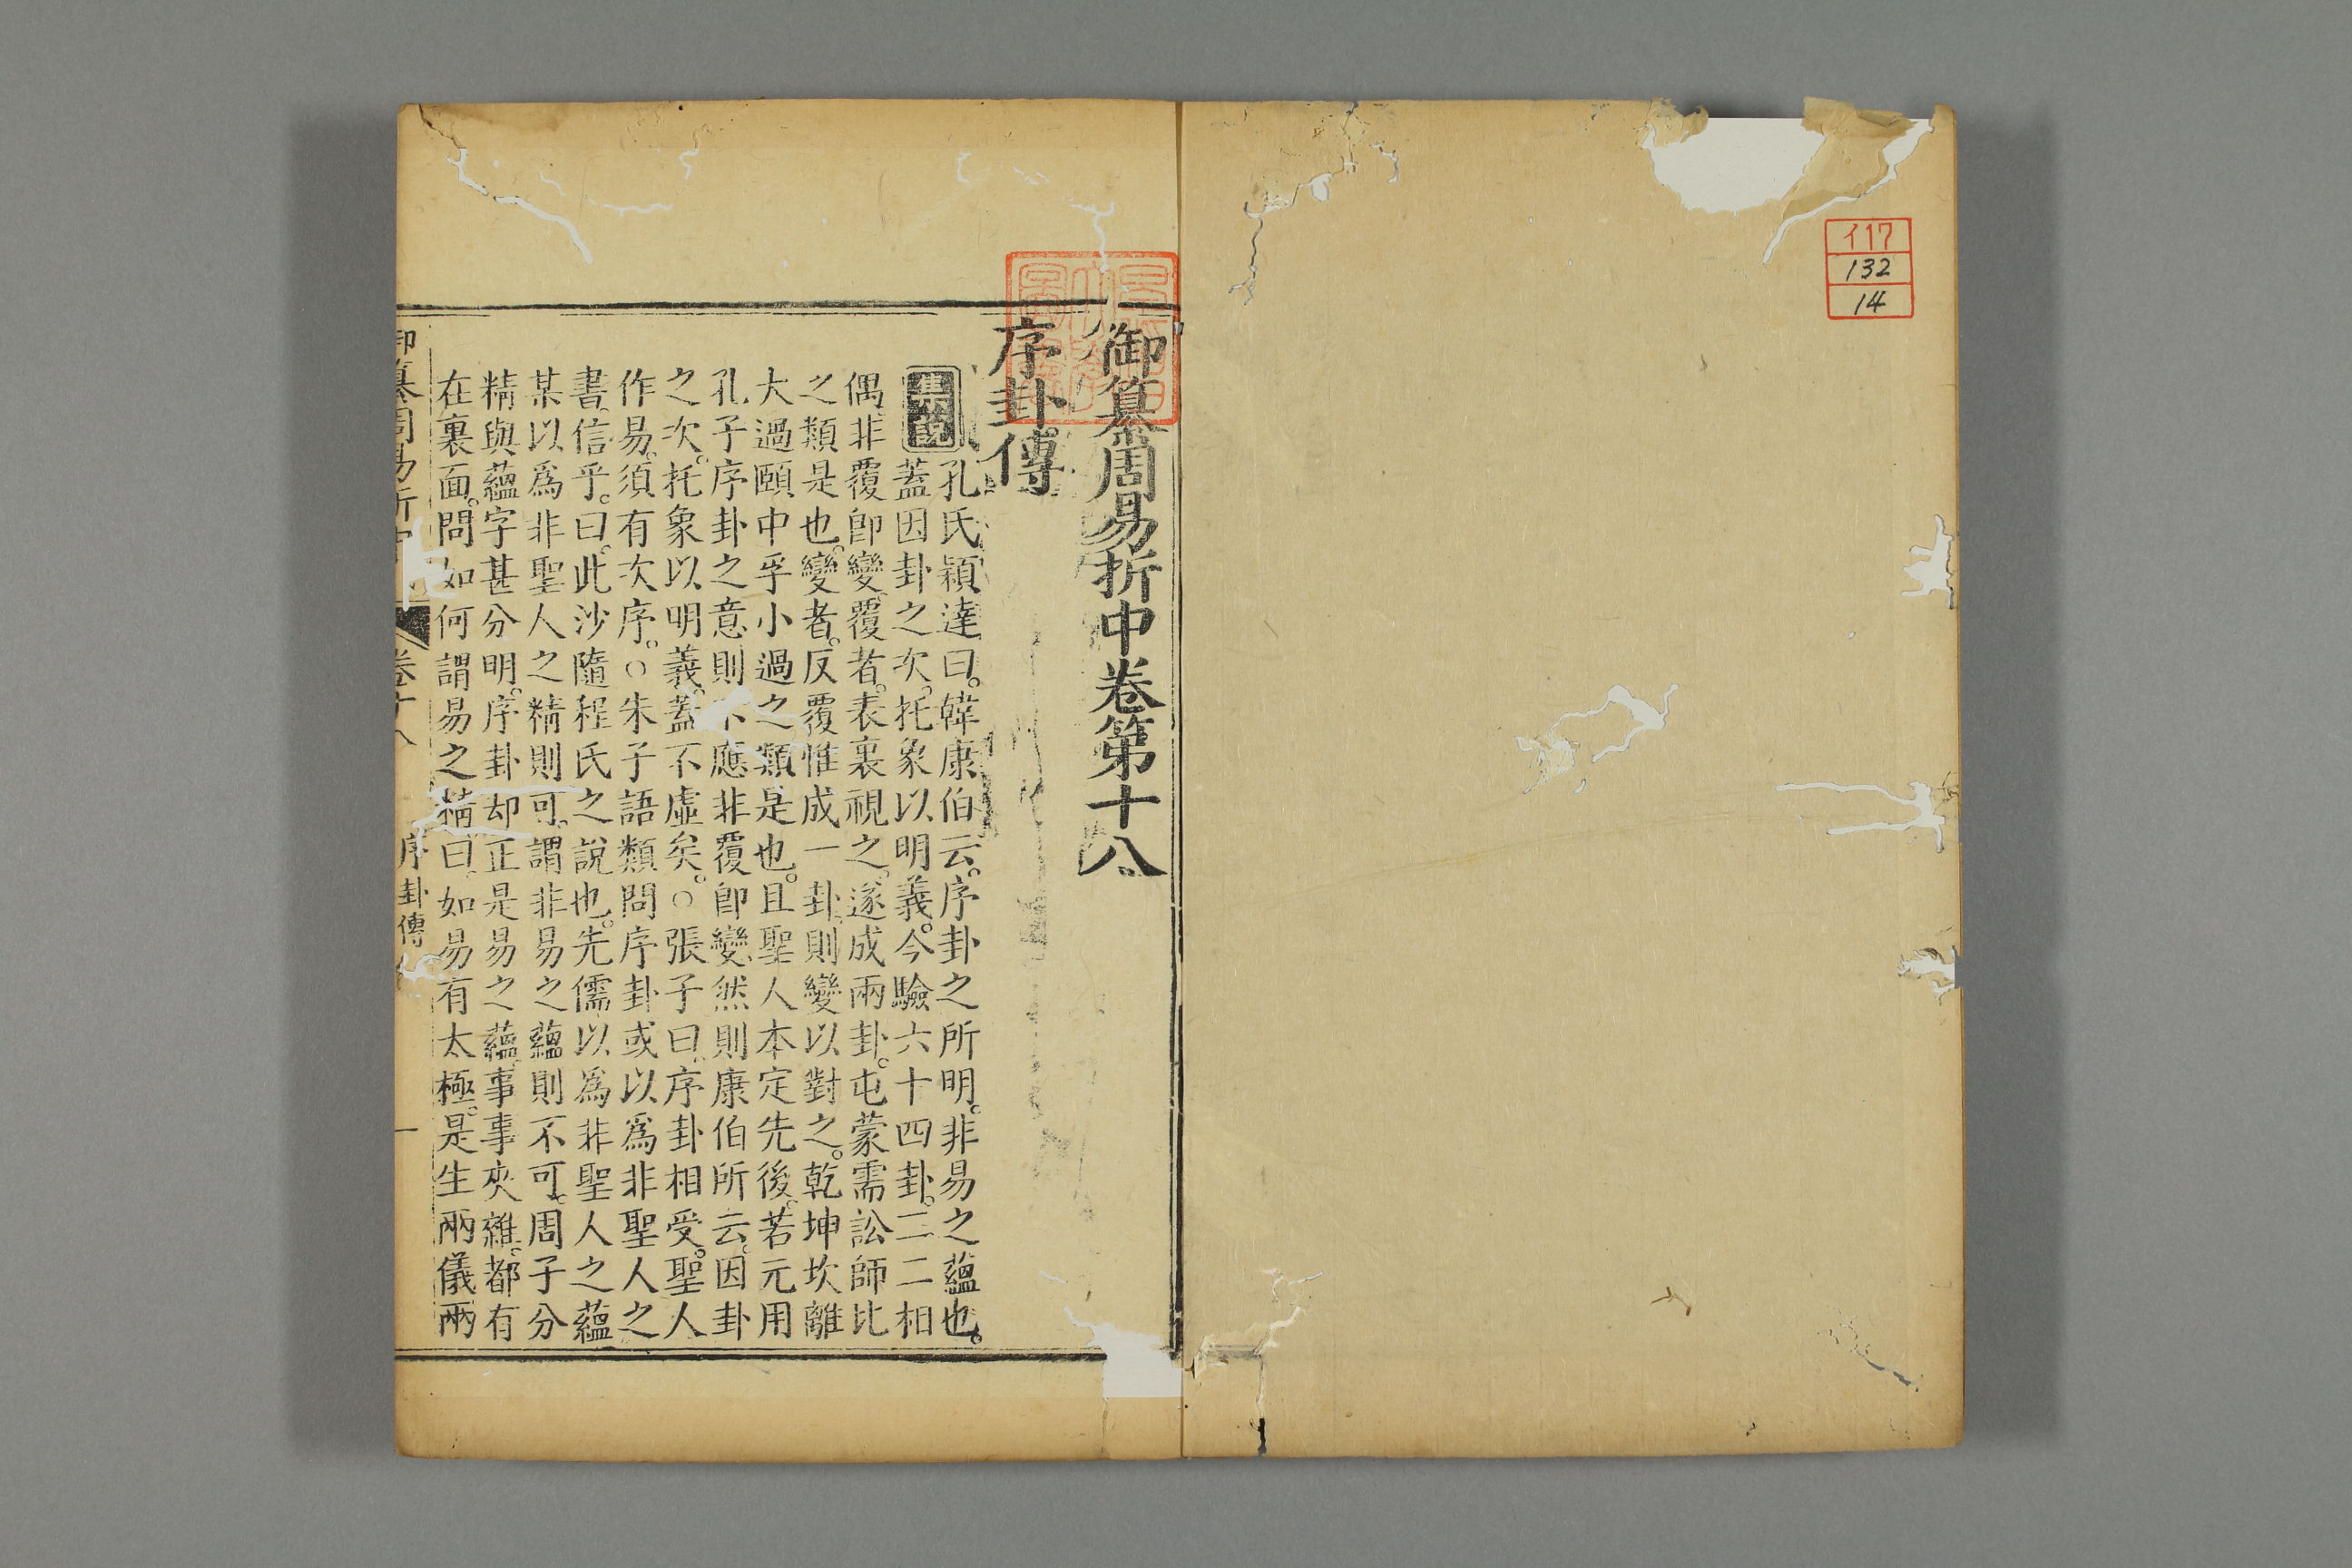 イ17
132
14
御纂周易折中卷第十八
序卦傳
集說
孔氏穎達曰。韓康伯云。序卦之所明。非易之蘊也。
蓋因卦之次。托象以明義。今驗六十四卦。二二相
偶。非覆卽變。覆者。表裏視之。遂成兩卦。屯蒙需訟師比
之類是也。變者。反覆惟成一卦。則變以對之。乾坤坎離
大過頤中孚小過之類是也。且聖人本定先後。若元用
孔子序卦之意。則不應非覆卽變。然則康伯所云。因卦
之次。托象以明義。蓋不虛矣。○張子曰。序卦相受。聖人
作易。須有次序。○朱子語類問序卦或以爲非聖人之
書。信乎。曰。此沙隨程氏之說也。先儒以爲非聖人之蘊
某以爲非聖人之精則可。謂非易之蘊則不可。周子分
精與蘊字甚分明。序卦却正是易之蘊。事事夾雜。都有
在裏面。問如何謂易之精。曰。如易有太極。是生兩儀。兩
御纂周易折中 卷十八 序卦傳 一